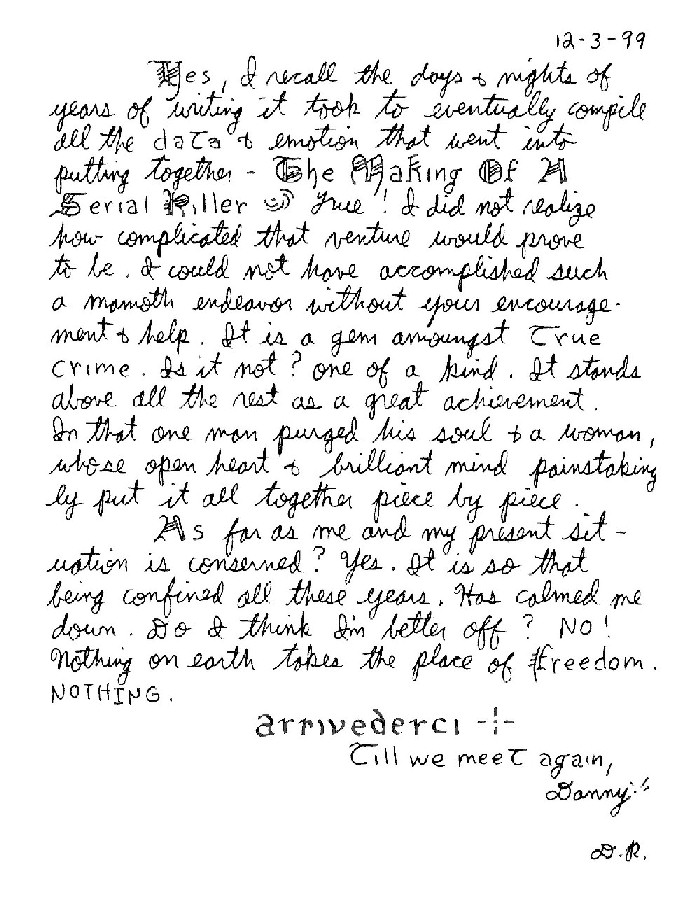 12-3-99
Yes, I recall the days & nights of
years of writing it took to eventually compile
all the data & emotion that went into
putting together - The Making Of A
Serial Killer True! I did not realize
how complicated that venture would prove
to be. I could not have accomplished such
a mamoth endeavor without your encourage-
ment & help. It is a gem amoungst True
crime. Is it not? one of a kind. It stands
above all the rest as a great achievement.
In that one man purged his soul & a woman,
whose open heart & brilliant mind painstaking
ly put it all together piece by piece.
As far as me and my present sit-
uation is conserned? Yes. It is so that
being confined all these years. Has calmed me
down. Do I think I'm better off? NO!
Nothing on earth takes the place of freedom.
NOTHING.
arrivederci
Till we meet again,
Danny
D.R.